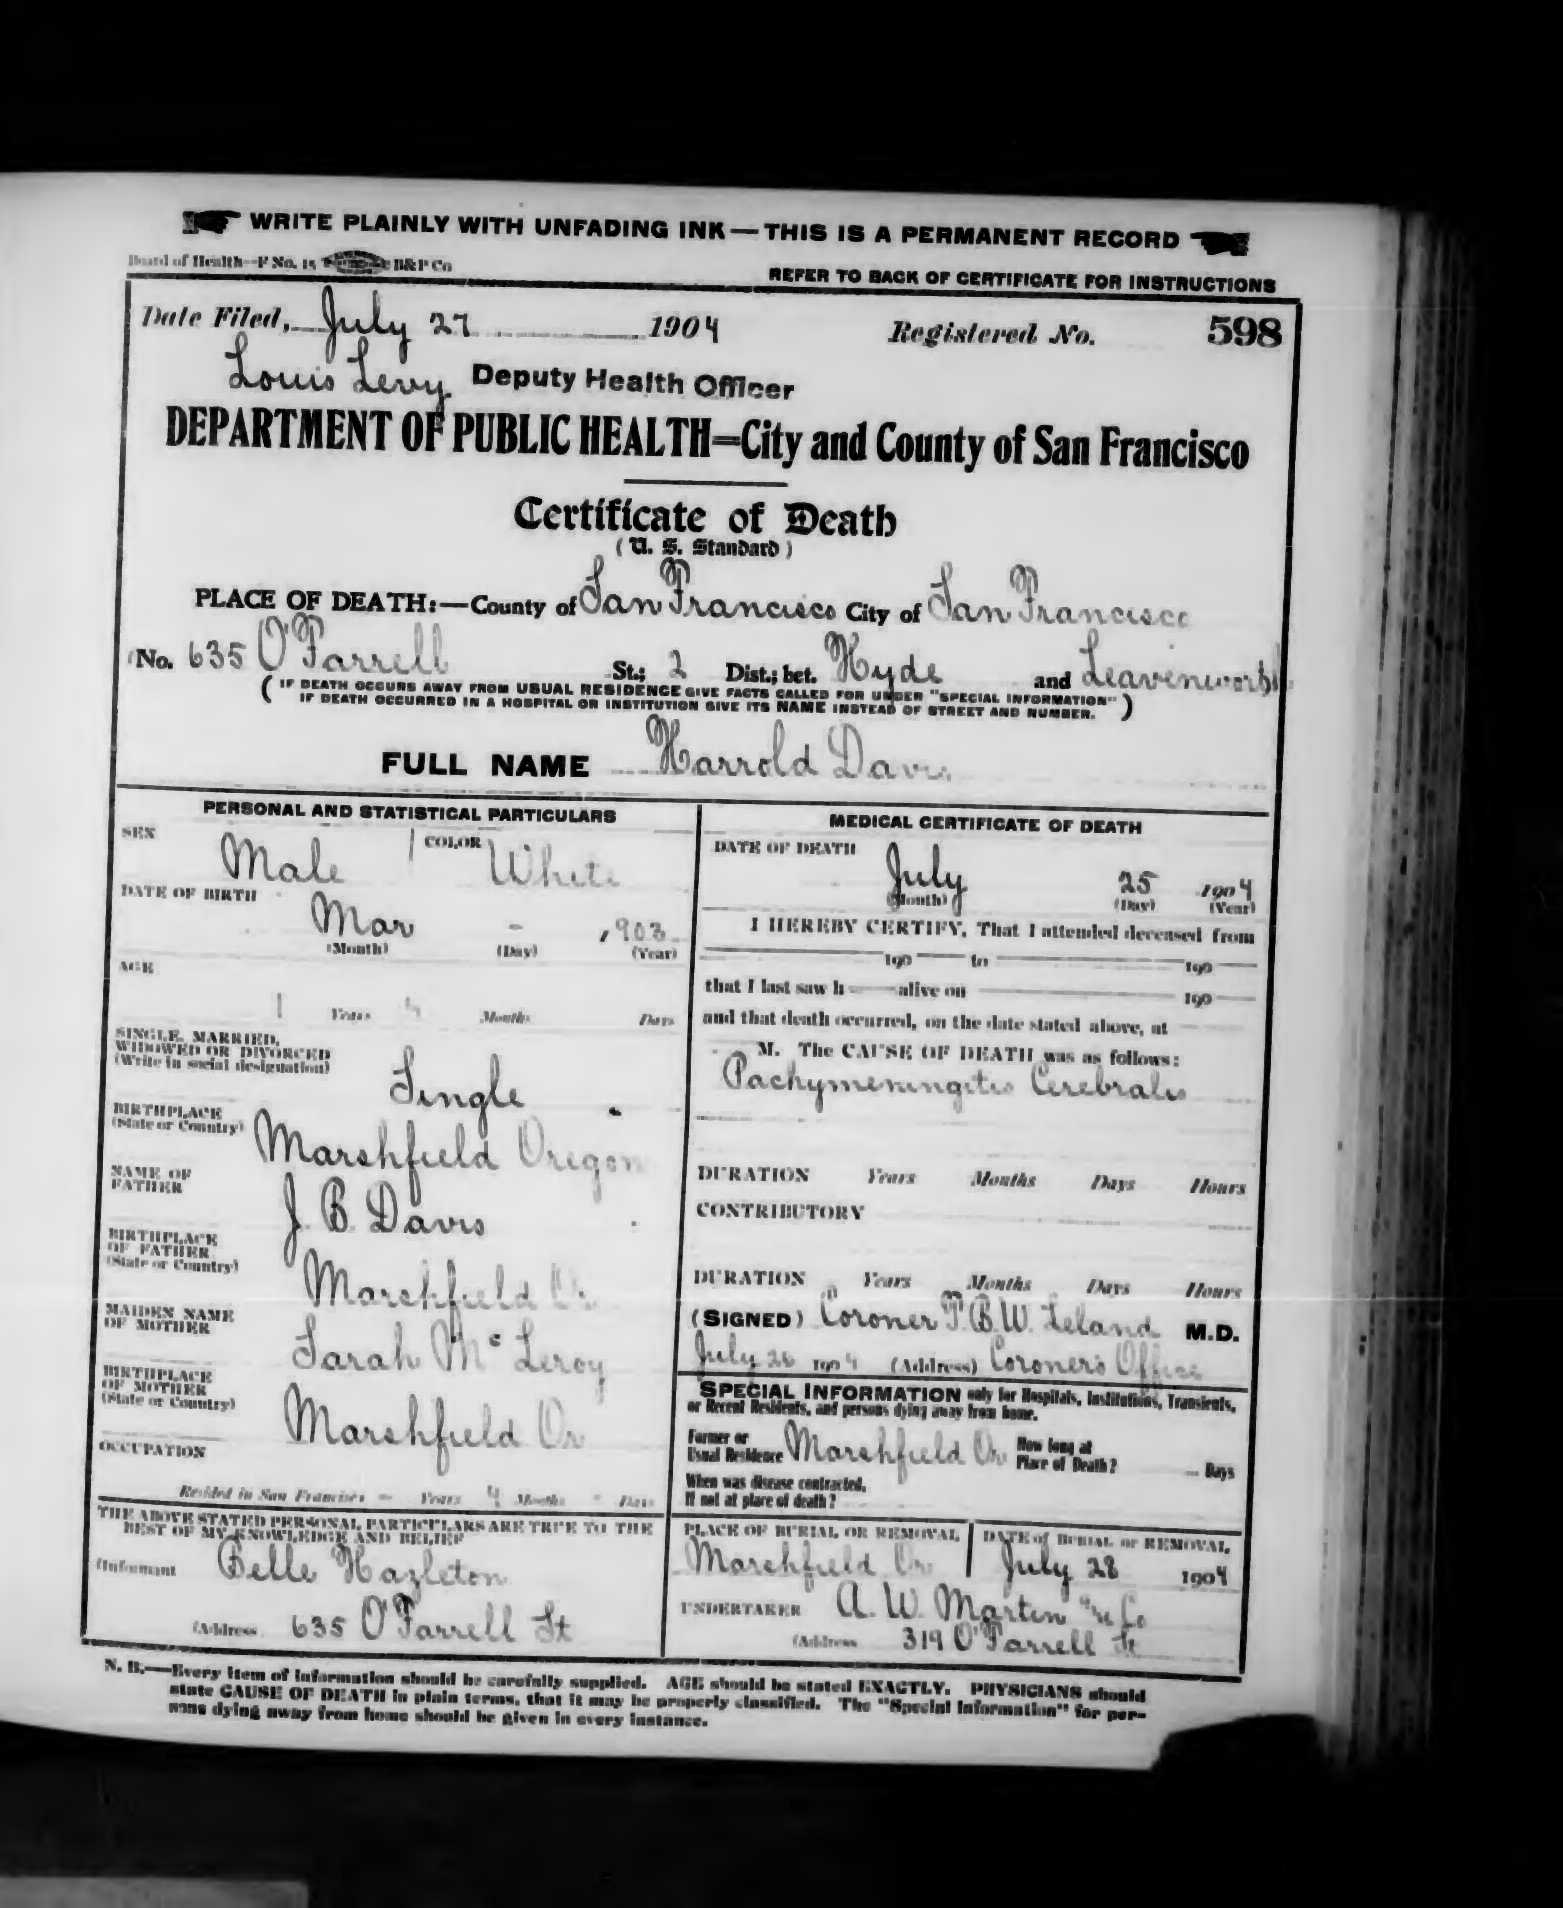 WRITE PLAINLY WITH UNFADING INK — THIS IS A PERMANENT RECORD
Board of Health—F No. 15 B&P Co
REFER TO BACK OF CERTIFICATE FOR INSTRUCTIONS
Date Filed, July 27 1904 Registered No. 598
Louis Levy Deputy Health Officer
DEPARTMENT OF PUBLIC HEALTH=City and County of San Francisco
Certificate of Death
(U. S. Standard)
PLACE OF DEATH:—County of San Francisco City of San Francisco
(No. 635 O'Farrell St.; 2 Dist.; bet. Hyde and Leavenworth
(IF DEATH OCCURS AWAY FROM USUAL RESIDENCE GIVE FACTS CALLED FOR UNDER "SPECIAL INFORMATION"
IF DEATH OCCURRED IN A HOSPITAL OR INSTITUTION GIVE ITS NAME INSTEAD OF STREET AND NUMBER.)
FULL NAME Harrold Davis
PERSONAL AND STATISTICAL PARTICULARS
SEX Male COLOR White
DATE OF BIRTH
Mar - 1903
(Month) (Day) (Year)
AGE
1 Years 4 Months Days
SINGLE, MARRIED,
WIDOWED OR DIVORCED
(Write in social designation)
Single
BIRTHPLACE
(State or Country) Marshfield Oregon
NAME OF
FATHER J. B. Davis
BIRTHPLACE
OF FATHER
(State or Country) Marshfield Or
MAIDEN NAME
OF MOTHER Sarah McLeroy
BIRTHPLACE
OF MOTHER
(State or Country) Marshfield Or
OCCUPATION
Resided in San Francisco - Years 4 Months - Days
THE ABOVE STATED PERSONAL PARTICULARS ARE TRUE TO THE
BEST OF MY KNOWLEDGE AND BELIEF
(Informant Belle Hazleton
(Address 635 O'Farrell St
MEDICAL CERTIFICATE OF DEATH
DATE OF DEATH
July 25 1904
(Month) (Day) (Year)
I HEREBY CERTIFY, That I attended deceased from
190 to 190
that I last saw h alive on 190
and that death occurred, on the date stated above, at
M. The CAUSE OF DEATH was as follows:
Pachymeningitis Cerebralis
DURATION Years Months Days Hours
CONTRIBUTORY
DURATION Years Months Days Hours
(SIGNED) Coroner T. B. W. Leland M.D.
July 26 1904 (Address) Coroner's Office
SPECIAL INFORMATION only for Hospitals, Institutions, Transients,
or Recent Residents, and persons dying away from home.
Former or
Usual Residence Marshfield Or How long at
Place of Death? — Days
When was disease contracted,
If not at place of death?
PLACE OF BURIAL OR REMOVAL Marshfield Or
DATE of BURIAL or REMOVAL July 28 1904
UNDERTAKER A. W. Martin Co
(Address 319 O'Farrell St
N. B.—Every item of information should be carefully supplied. AGE should be stated EXACTLY. PHYSICIANS should
state CAUSE OF DEATH in plain terms, that it may be properly classified. The "Special Information" for per-
sons dying away from home should be given in every instance.